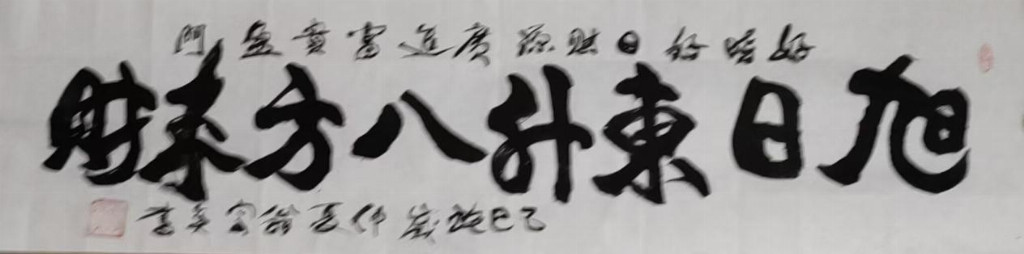 好時好日財源廣進富貴盈門
旭日東升八方來財
乙巳蛇歲仲夏
書